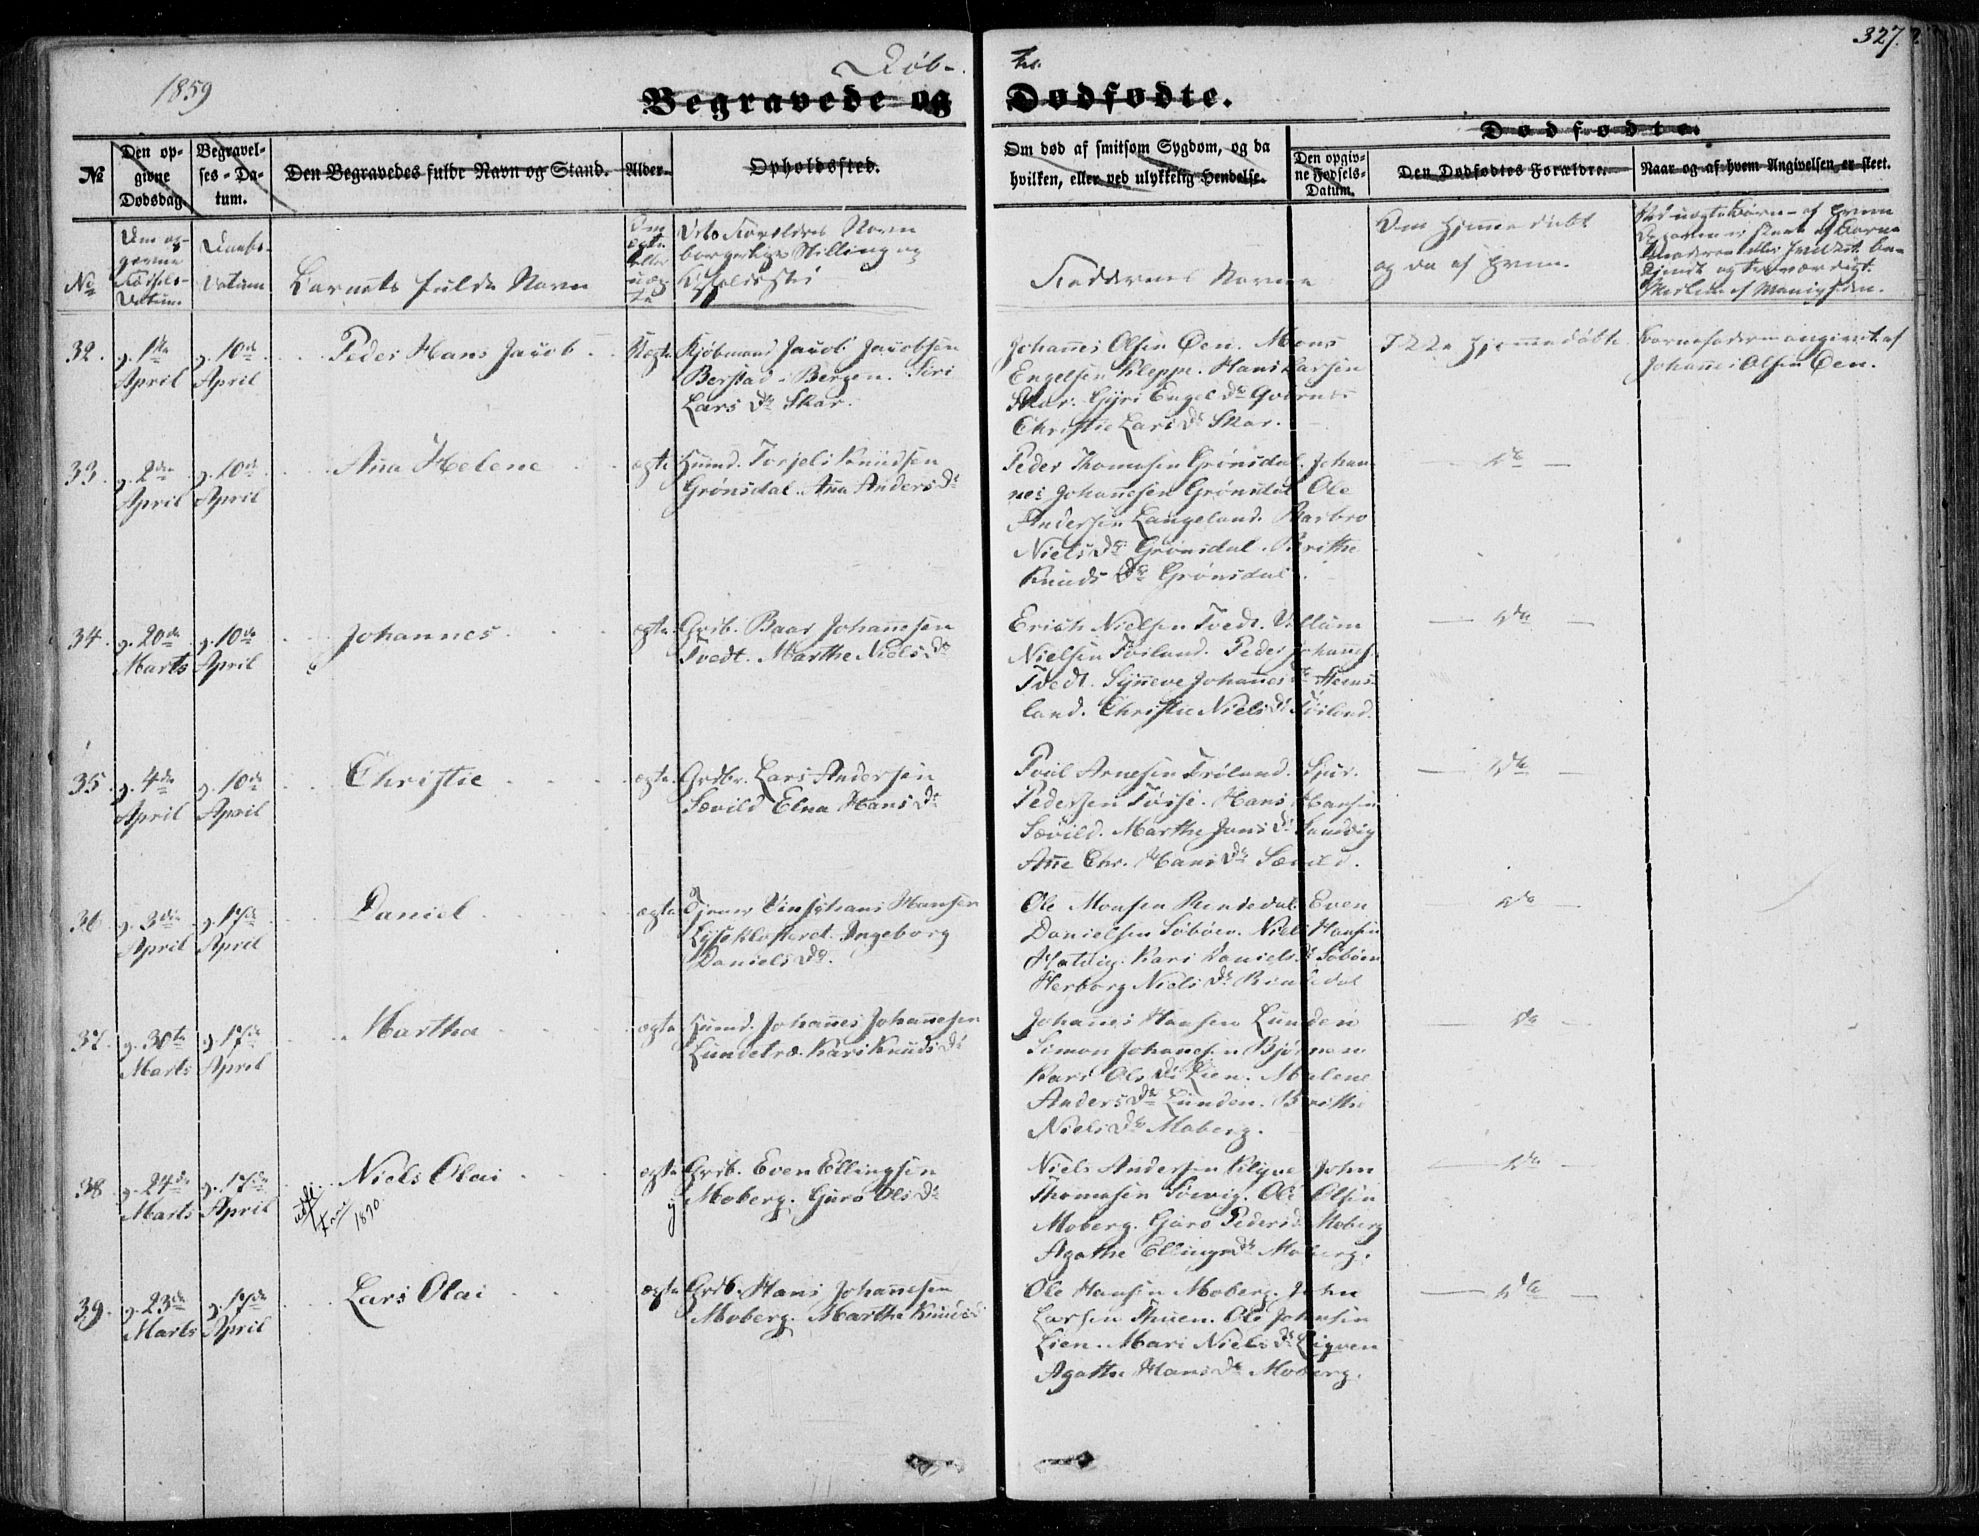 1859
Døb-
te.
327.
Begravede og Dødfødte.
Dødfødte.
No
Den op-
givne
Dødsdag
Begravel-
ses-Da-
tum.
Den Begravedes fulde Navn og Stand.
Alder.
Opholdssted.
Om død af smitsom Sygdom, og da
hvilken, eller ved ulykkelig Hendelse.
Den opgiv-
ne Fødsels-
Datum.
Den Dødfødtes Forældre.
Naar og af hvem Angivelsen er skeet.
No
Den op-
givne
Fødsels-
Datum
Daabs-
Datum
Barnets fulde Navn
Om
ægte
eller
uæg-
te
Dets Forældres Navn
borgerlige Stilling og
Opholdssted
Faddernes Navne
Om hjemmedøbt
og da af hvem.
32. g. 1ste April g. 10de April
Peder Hans Jacob
Uægte
Kjøbmand Jacob Jacobsen
Berstad i Bergen. Siri
Lars Dr Skar.
Johannes Olsen Øen. Mons
Engelsen Kleppe. Hans Larsen
Skar. Gjøri Engel Dr
Christie Lars Dr Skar.
Ikke hjemmedøbt.
Barnefaderen angivet af
Johannes Olsen Øen.
33. g. 2den April g. 10de April
Ana Helene
ægte
Huusmd. Torjels Knudsen
Grønsdal. Ana Anders Dr
Peder Thomasen Grønsdal. Johan-
nes Johannesen Grønsdal. Ole
Andersen Langeland. Barbro
Niels Dr Grønsdal. Brithe
Knuds Dr Grønsdal.
do
34. g. 20de Marts g. 10de April
Johannes
ægte
Grdb. Baar Johannesen
Tvedt. Marthe Niels Dr
Erich Nielsen Tvedt. Villum
Nielsen Røiland. Peder Johannes.
Tvedt. Synneve Johannes Dr
land. Christie Niels Dr
do
35. g. 4de April g. 10de April
Christie
ægte
Grdbr. Lars Andersen
Sævild Elna Hans Dr
Poul Arnesen Frøland. Sjur
Pedersen Tøsse. Hans Hansen
Sævild. Marthe Jons Dr Sandvig
Ane Chr. Hans Dr Sævild.
do
36. g. 3die April g. 17de April
Daniel
ægte
Hansen
Lyseklosteret. Ingeborg
Daniels Dr.
Ole Monsen Rendedal. Even
Danielsen Søbøen. Niels Hansen
Hatvig. Kari Daniels Dr Søbøen
Herborg Niels Dr Rendedal
do
37. g. 30te Marts g. 17de April
Martha
ægte
Huusmd. Johannes Johannesen
Lundetræ. Kari Knuds Dr
Johannes Hansen Lunden
Simon Johannesen Bjørnen
Kari Ols Dr Lien. Malene
Anders Dr Lunden. Brithe
Niels Dr Moberg.
do
38. g. 24de Marts g. 17de April
Niels Olai
1870
ægte
Grdb. Even Ellingsen
Moberg. Guro Ols Dr
Niels Andersen John
Thomasen Søevig. Ole Olsen
Moberg. Guro Peders Dr Moberg
Agathe Ellings Dr Moberg.
do
39. g. 23de Marts g. 17de April
Lars Olai
ægte
Grdb. Hans Johannesen
Moberg. Marthe Knuds Dr
Ole Hansen Moberg. John
Larsen Thuen. Ole Johnsen
Lien. Mari Niels Dr Ligven
Agathe Hans Dr Moberg.
do